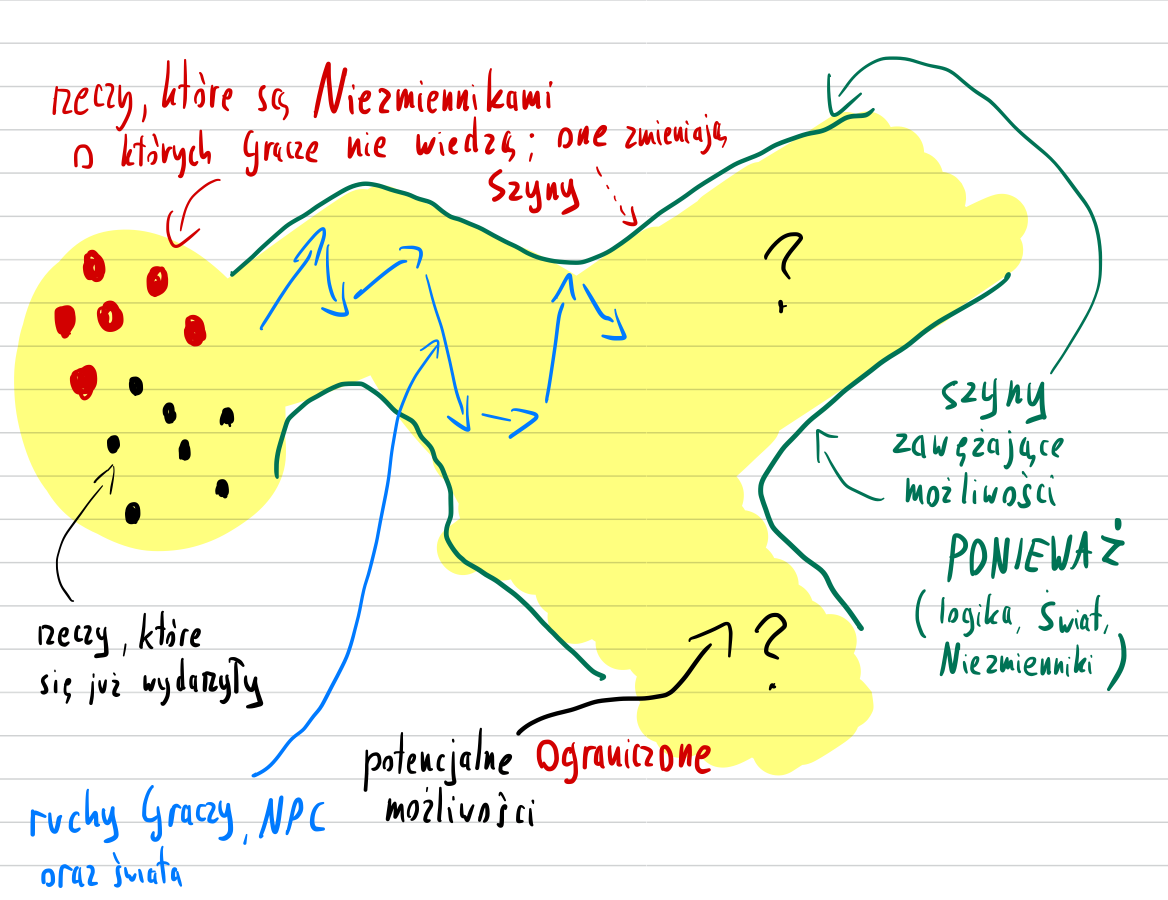 rzeczy, które są Niezmiennikami
o których Gracze nie wiedzą; one zmieniają
Szyny
?
szyny
zawężające
możliwości
PONIEWAŻ
(logika, świat,
Niezmienniki)
rzeczy, które
się już wydarzyły
?
potencjalne Ograniczone
możliwości
ruchy Graczy, NPC
oraz świata